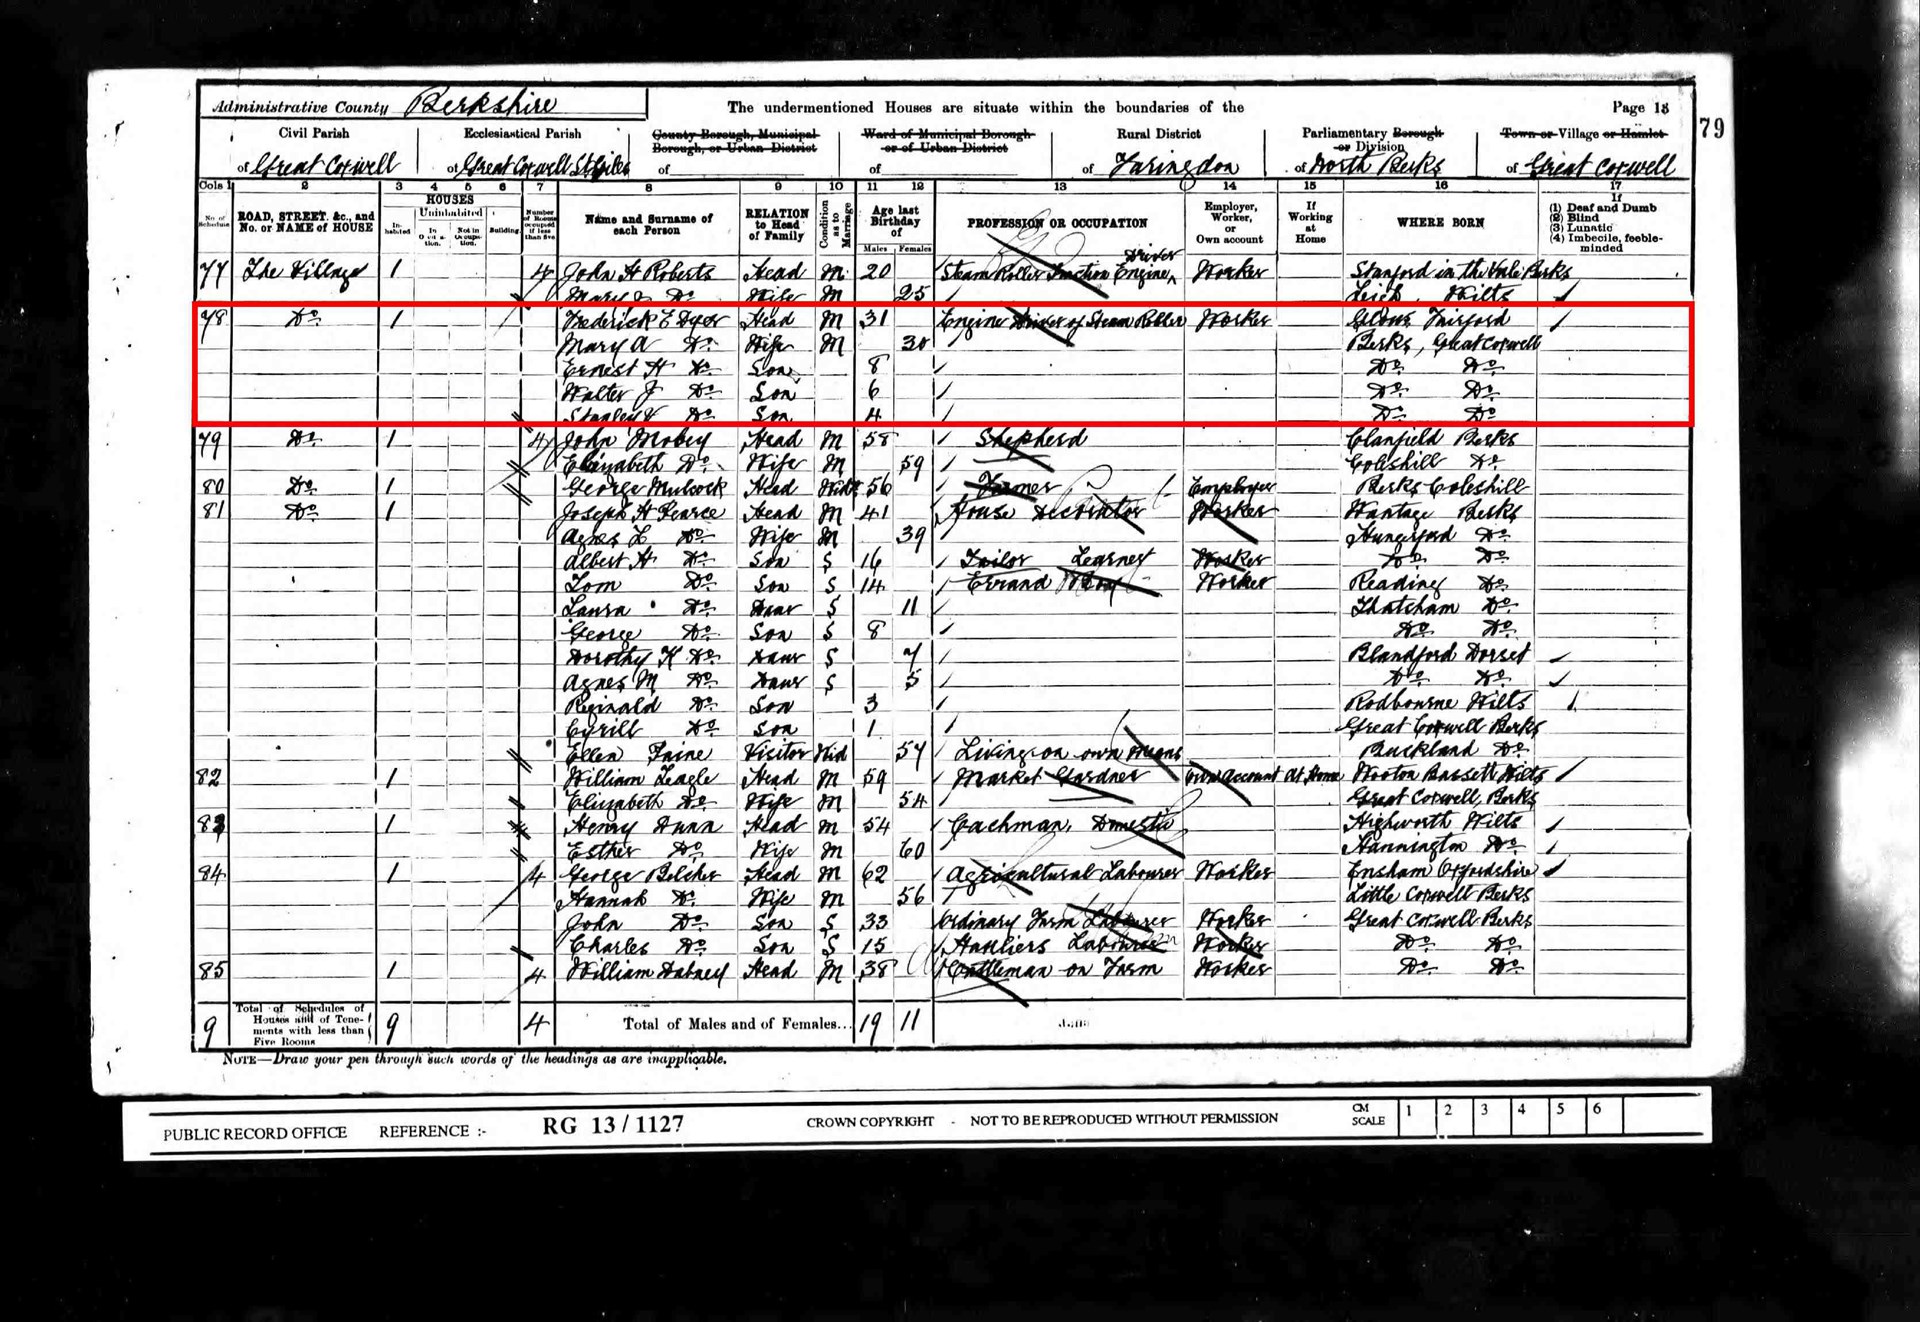 Administrative County Berkshire
The undermentioned Houses are situate within the boundaries of the
Page 18
79
Civil Parish of Great Coxwell
Ecclesiastical Parish of Great Coxwell St Giles
County Borough, Municipal Borough, or Urban District of
Ward of Municipal Borough or of Urban District of
Rural District of Faringdon
Parliamentary Borough or Division of North Berks
Town or Village or Hamlet of Great Coxwell
Cols 1 2 3 4 5 6 7 8 9 10 11 12 13 14 15 16 17
No. of Schedule
ROAD, STREET, &c., and No. or NAME of HOUSE
HOUSES
Inhabited
Uninhabited
In Occupation.
Not in Occupation.
Building.
Number of Rooms occupied if less than five
Name and Surname of each Person
RELATION to Head of Family
Condition as to Marriage
Age last Birthday of
Males Females
PROFESSION OR OCCUPATION
Employer, Worker, or Own account
If Working at Home
WHERE BORN
If
(1) Deaf and Dumb
(2) Blind
(3) Lunatic
(4) Imbecile, feeble-minded
77 The Village 1 4 John H Roberts Head M 20 Steam Roller Traction Engine Driver Worker Stanford in the Vale Berks
Mary Do Wife M 25 Wilts
78 Do 1 Frederick E Dyer Head M 31 Engine Driver of Steam Roller Worker Glous Fairford
Mary A Do Wife M 30 Berks, Great Coxwell
Ernest H Do Son 8 Do Do
Walter J Do Son 6 Do Do
Stanley V Do Son 4 Do Do
79 Do 1 4 John Mobey Head M 58 Shepherd Clanfield Berks
Elizabeth Do Wife M 59 Coleshill Do
80 Do 1 George Mulcock Head Widr 56 Farmer Employer Berks Coleshill
81 Do 1 Joseph H Pearce Head M 41 House Decorator Worker Wantage Berks
Agnes L Do Wife M 39 Hungerford Do
Albert H Do Son S 16 Tailor Learner Worker Do Do
Tom Do Son S 14 Errand Boy Worker Reading Do
Laura Do Daur S 11 Thatcham Do
George Do Son S 8 Do Do
Dorothy K Do Daur S 7 Blandford Dorset
Agnes M Do Daur S 5 Do Do
Reginald Do Son 3 Rodbourne Wilts
Cyrill Do Son 1 Great Coxwell Berks
Ellen Visitor Wid 57 Living on own means Buckland Do
82 1 William Head M 59 Market Gardner Own account At Home Wooton Bassett Wilts
Elizabeth Do Wife M 54 Great Coxwell, Berks
83 1 Henry Dunn Head M 54 Cachman, Domestic Highworth Wilts
Esther Do Wife M 60 Hannington Do
84 1 4 George Belcher Head M 62 Agricultural Labourer Worker Ensham Oxfordshire
Hannah Do Wife M 56 Little Coxwell Berks
John Do Son S 33 Ordinary Farm Labourer Worker Great Coxwell Berks
Charles Do Son S 15 Hauliers Labourer Worker Do Do
85 1 4 William Head M 38 Cattleman on Farm Worker Do Do
9 Total of Schedules of Houses and of Tenements with less than Five Rooms 9 4 Total of Males and of Females... 19 11
NOTE—Draw your pen through such words of the headings as are inapplicable.
PUBLIC RECORD OFFICE REFERENCE :- RG 13 / 1127 CROWN COPYRIGHT - NOT TO BE REPRODUCED WITHOUT PERMISSION CM SCALE 1 2 3 4 5 6